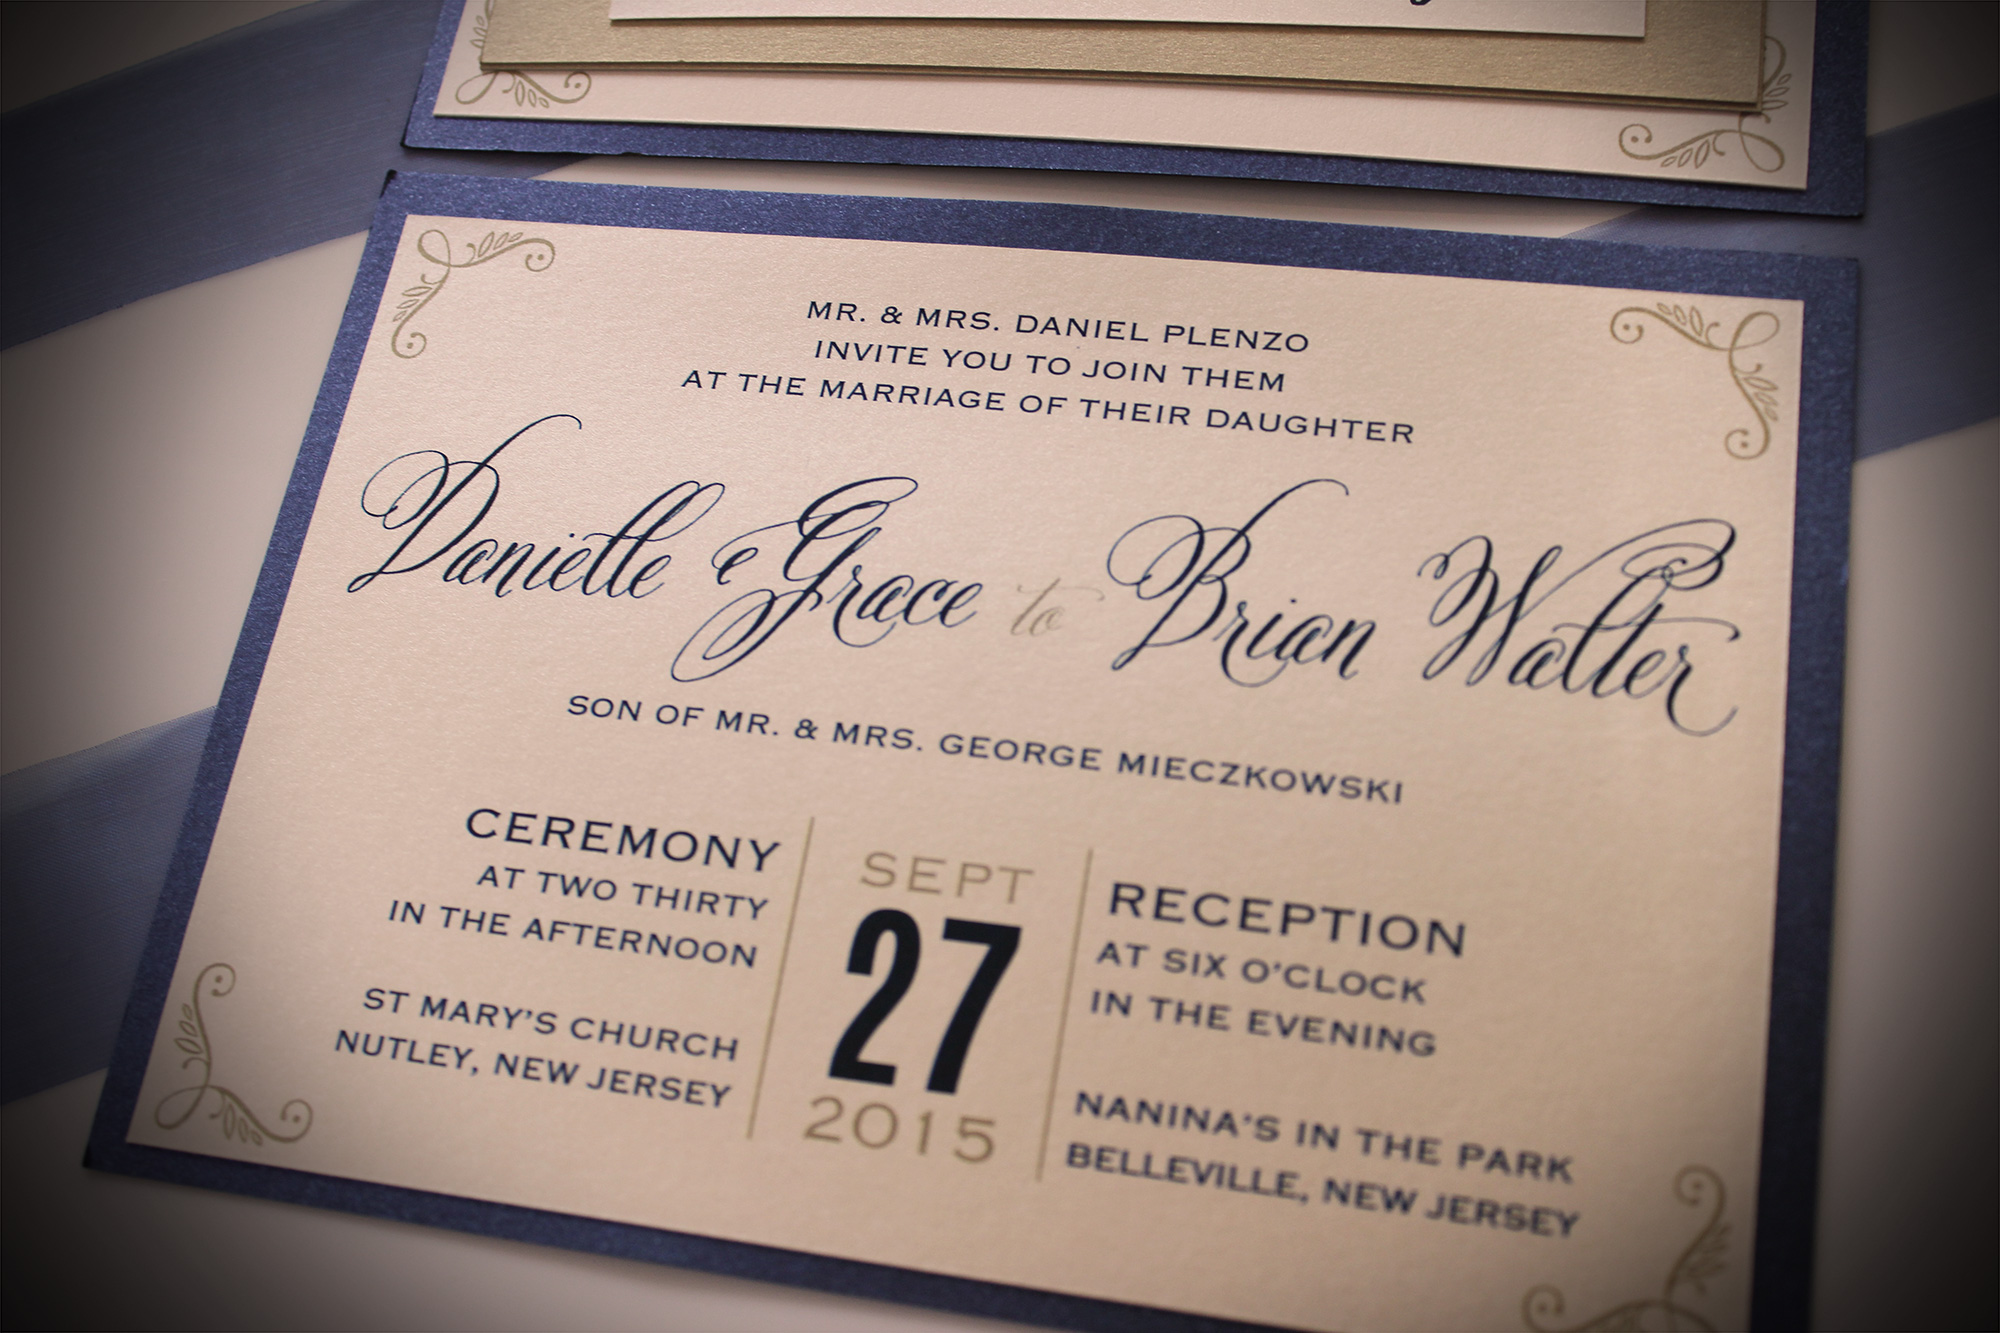 MR. & MRS. DANIEL PLENZO
INVITE YOU TO JOIN THEM
AT THE MARRIAGE OF THEIR DAUGHTER
Danielle Grace to Brian Walter
SON OF MR. & MRS. GEORGE MIECZKOWSKI
CEREMONY
AT TWO THIRTY
IN THE AFTERNOON
ST MARY'S CHURCH
NUTLEY, NEW JERSEY
SEPT
27
2015
RECEPTION
AT SIX O'CLOCK
IN THE EVENING
NANINA'S IN THE PARK
BELLEVILLE, NEW JERSEY